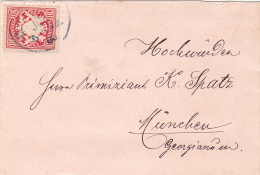 Hochwürden
Herrn Primiziant K. Spatz
München
Georgianum.